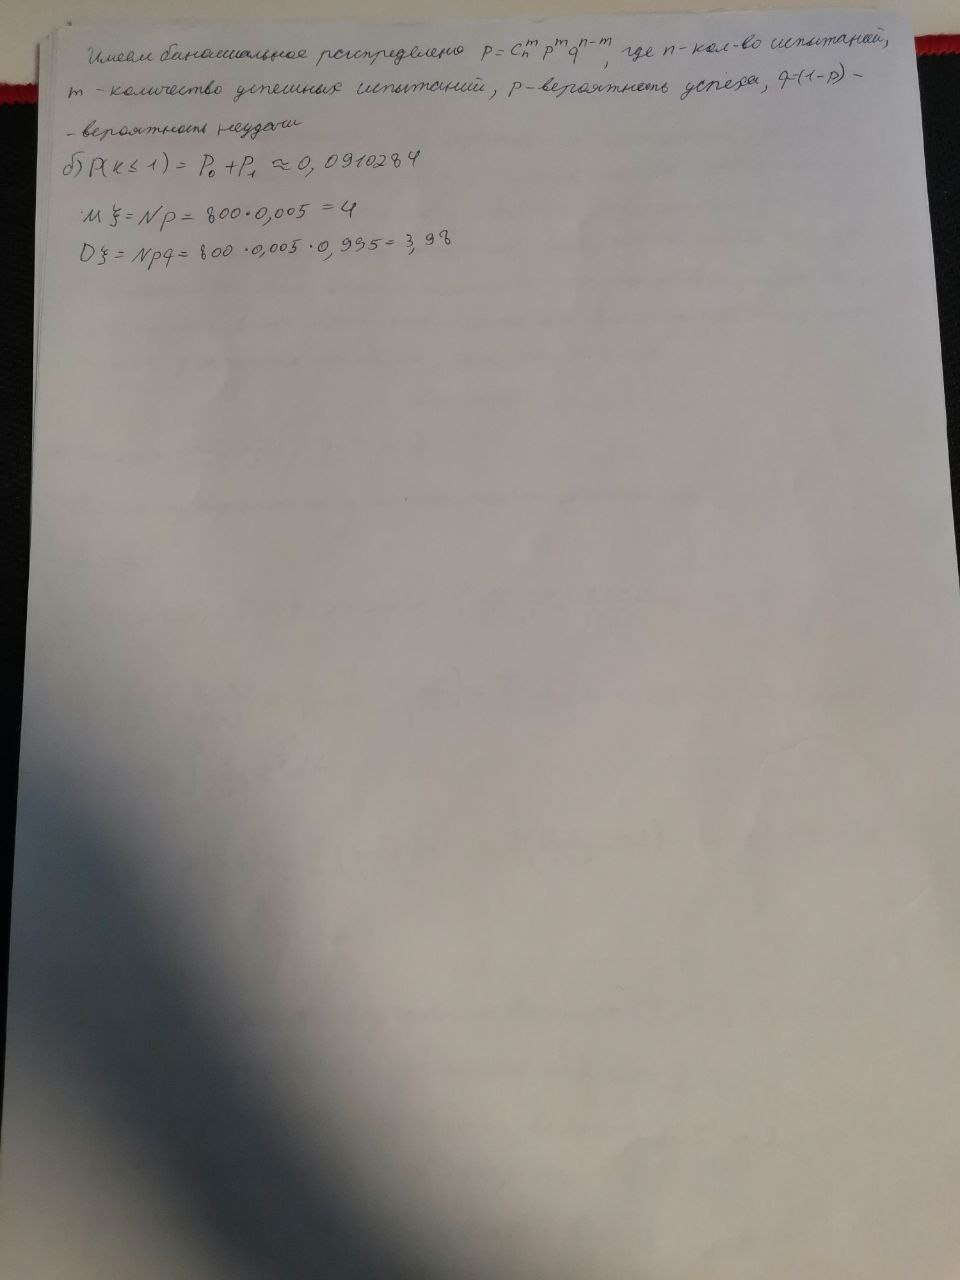 Имеем биномиальное распределено P = C_n^m p^m q^{n-m}, где n - кол-во испытаний,
m - количество успешных испытаний, p - вероятность успеха, q=(1-p) -
- вероятность неудачи
б) P(k ≤ 1) = P_0 + P_1 ≈ 0,0910284
Mξ = Np = 800 · 0,005 = 4
Dξ = Npq = 800 · 0,005 · 0,995 = 3,98